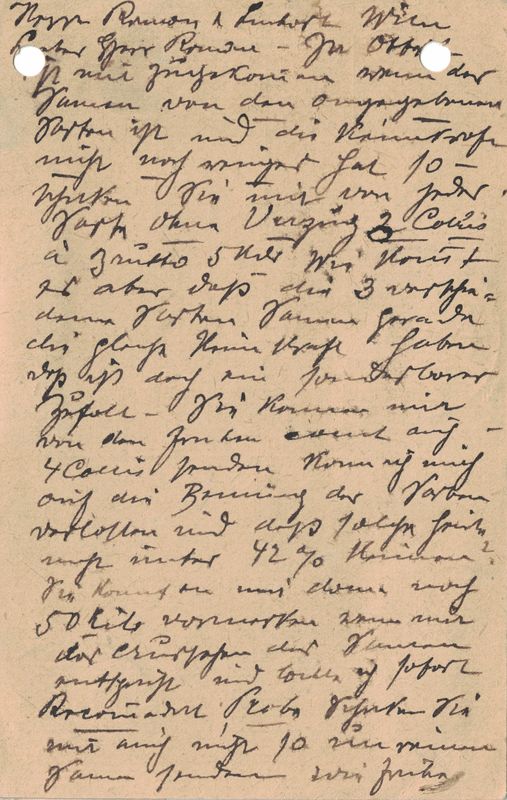 Herrn Roman & Lenhart Wien
Lieber Herr Roman – Ihr Offert
ist mir zugekomen wenn der
Samen von den angegebenen
Sorten ist und die Keimkraft
nicht noch weniger hat so –
schiken Sie mir von jeder
Sorte ohne Verzug 3 Collis
à Brutto 5 Kilo wie komt
es aber daß die 3 verschie=
dene Sorten Samen gerade
die gleiche Keimkraft haben
daß ist doch ein sonderbarer
Zufall – Sie konen mir
von den auch –
4 Collis senden kann ich mich
auf die Benenung der Sorten
verlassen und daß solche
nicht unter 42 % Keimen?
Sie konnten mir dann noch
50 Kilo vormerken wenn mir
das Aussehen des Samen
entspricht und bitte ich sofort
Recomandirt Probe Schiken Sie
mir auch nicht so unreinen
Samen senden wie